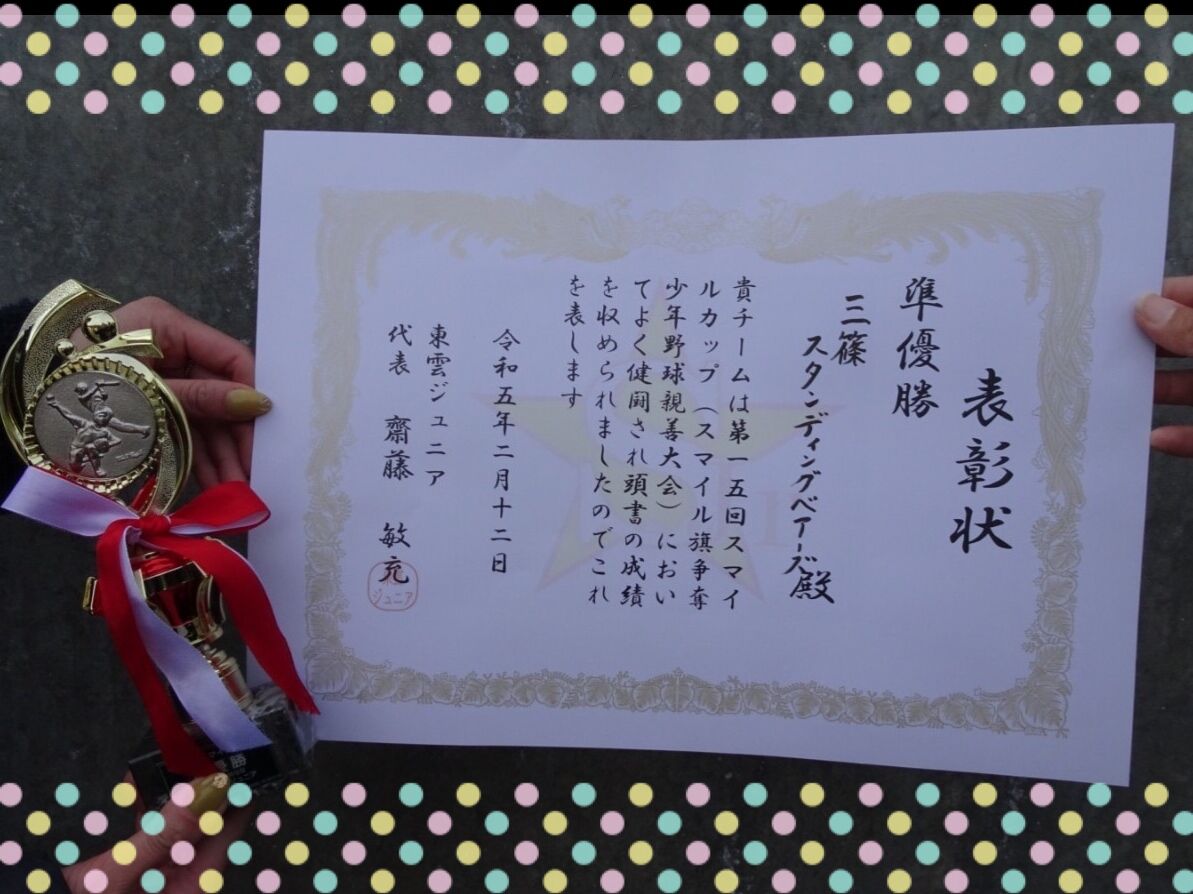 表彰状
準優勝
三篠
スタンディングベアーズ殿
貴チームは第一五回スマイ
ルカップ（スマイル旗争奪
少年野球親善大会）におい
てよく健闘され頭書の成績
を収められましたのでこれ
を表します
令和五年二月十二日
東雲ジュニア
代表 齋藤 敏充
ジュニア
優勝